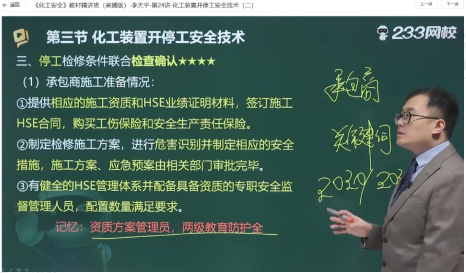 返回
《化工安全》教材精讲班（录播版）-李天宇-第24讲-化工装置开停工安全技术（二）
上一讲
下一讲
第三节 化工装置开停工安全技术
233网校
三、停工检修条件联合检查确认★★★★
（1）承包商施工准备情况：
①提供相应的施工资质和HSE业绩证明材料，签订施工
HSE合同，购买工伤保险和安全生产责任保险。
②制定检修施工方案，进行危害识别并制定相应的安全
措施，施工方案、应急预案由相关部门审批完毕。
③有健全的HSE管理体系并配备具备资质的专职安全监
督管理人员，配置数量满足要求。
记忆：资质方案管理员，两级教育防护全
承包商
关键词
2020/202